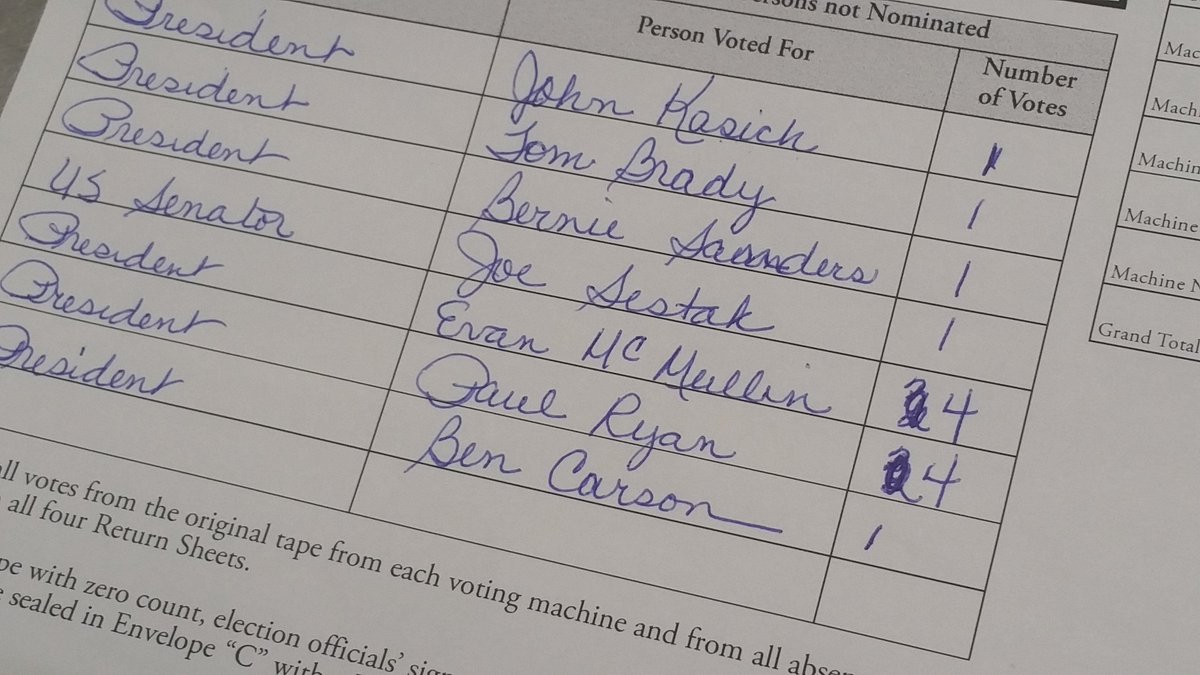 rsons not Nominated
Person Voted For
Number of Votes
President John Kasich 1
President Tom Brady 1
President Bernie Saunders 1
US Senator Joe Sestak 1
President Evan McMullin 4
President Paul Ryan 4
President Ben Carson 1
Mac
Mach
Machin
Machine
Machine N
Grand Total
all votes from the original tape from each voting machine and from all absen
all four Return Sheets.
pe with zero count, election officials' sign
e sealed in Envelope "C" with